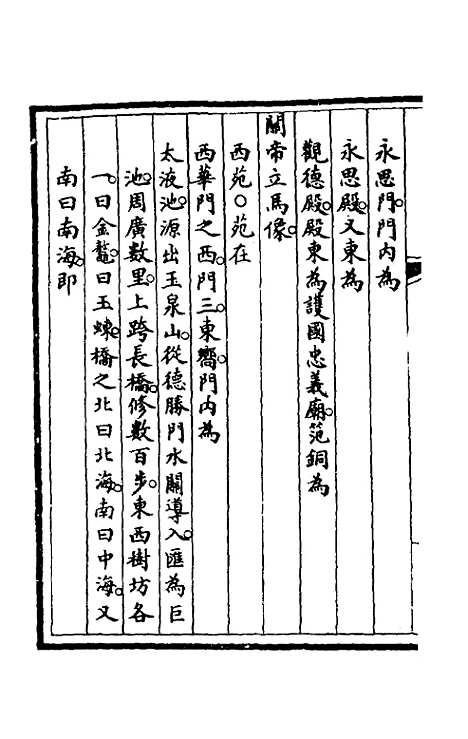 永思門。門内為
永思殿。又東為
觀德殿。殿東為護國忠義廟。笵銅為
關帝立馬像。
西苑○苑在
西華門之西。門三。東嚮。門内為
太液池。源出玉泉山。從德勝門水關導入。匯為巨
池。周廣數里。上跨長橋。修數百步。東西樹坊各
一。曰金鼇。曰玉蝀。橋之北曰北海。南曰中海。又
南曰南海。即